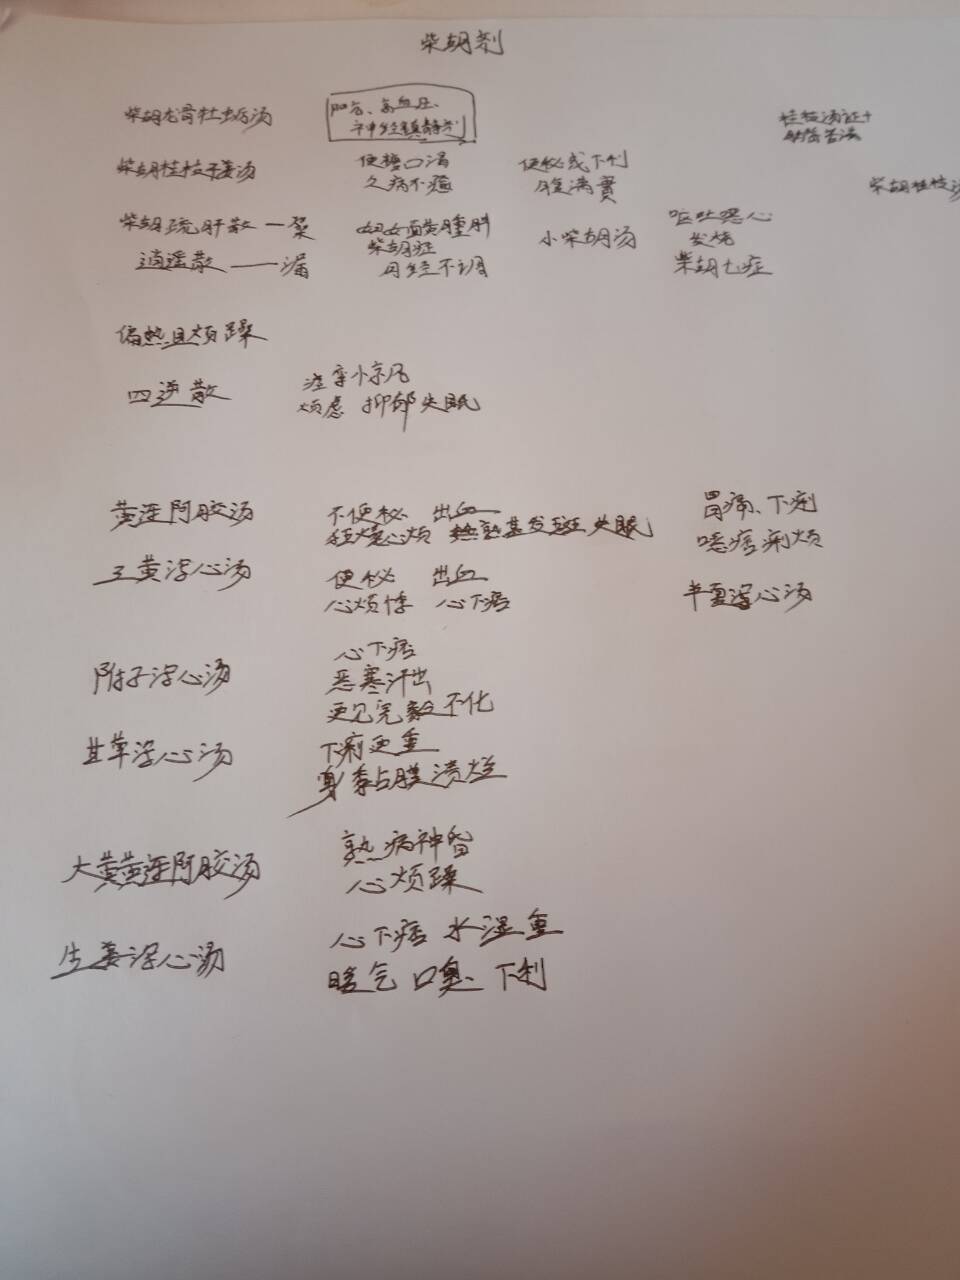 柴胡剂
柴胡龙骨牡蛎汤
高血压、
神经镇静剂
桂枝汤证+
柴胡桂枝干姜汤
便溏口渴
久病不癒
便秘或下利
满實
柴胡桂枝汤
柴胡疏肝散一聚
妇女面黄腫胖
柴胡症
月经不调
小柴胡汤
呕吐恶心
发烧
柴胡七症
逍遥散——漏
偏热且烦躁
四逆散
痉挛惊风
烦虑 抑郁失眠
黄连阿胶汤
不便秘 出血
狂燥心烦 热熟甚发斑 失眠
胃痛、下痢
噁痞痢烦
三黄泻心汤
便秘 出血
心烦悸 心下痞
半夏泻心汤
附子泻心汤
心下痞
恶寒汗出
更见完穀不化
甘草泻心汤
下痢更重
身黏膜溃烂
大黄黄连阿胶汤
熟病神昏
心烦躁
生姜泻心汤
心下痞 水湿重
嗳气 口臭、下利